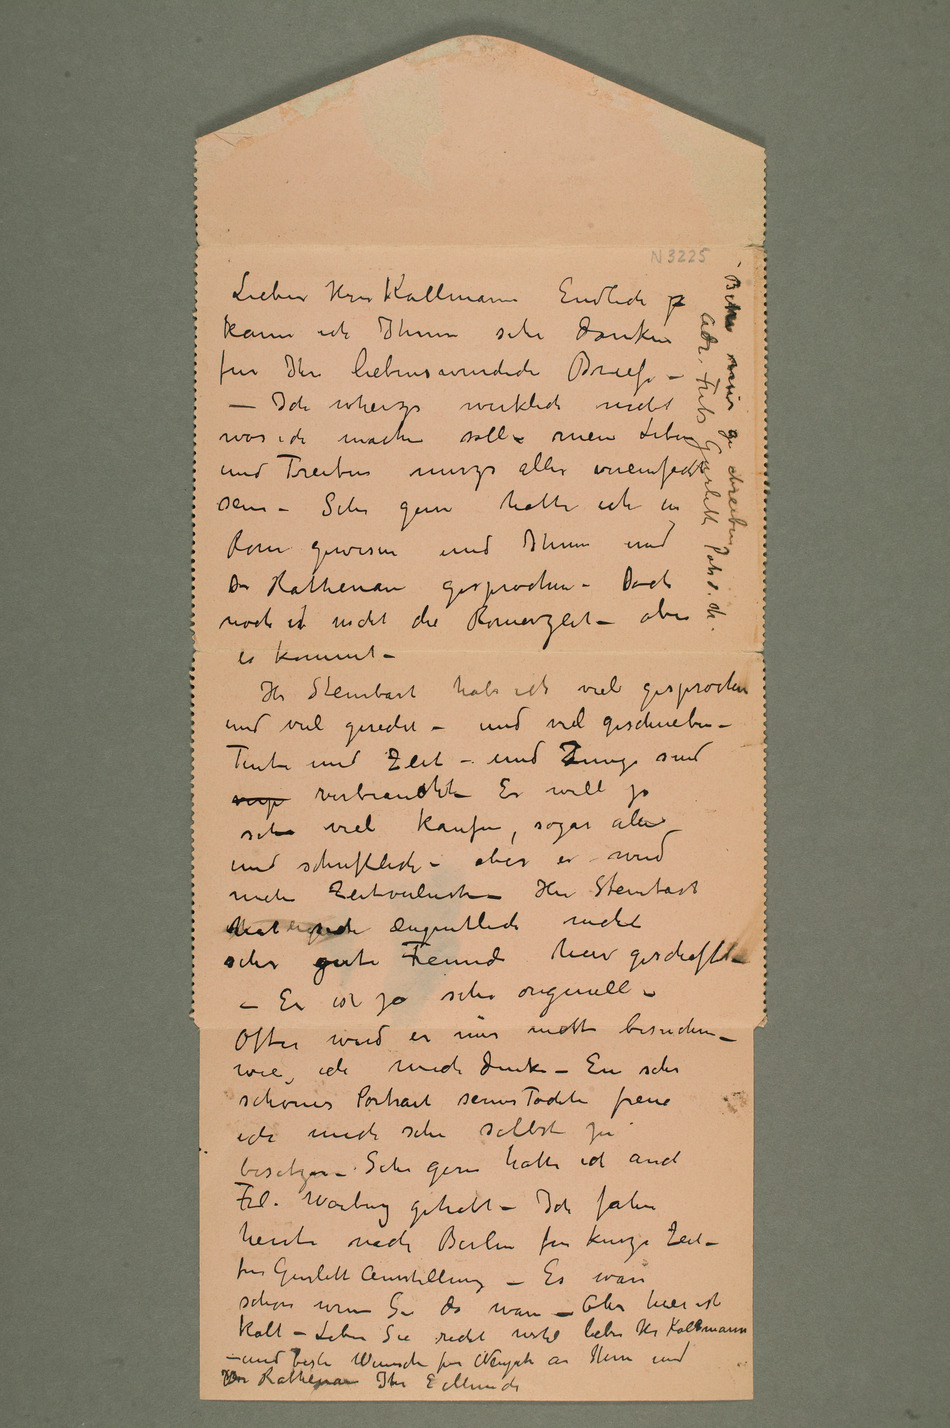 N3225
Lieber Herr Kollmann Endlich
kann ich Ihnen sehr danken
für Ihr liebenswurdich Brief –
– Ich wirklich nicht
was ich machen soll – mein Leben
und Treiben alles vereinfacht
sein – Sehr gern hatte ich in
Rom gewesen und Ihnen und
Dr Rathenau gesprochen – Doch
noch ist nicht die Romerzeit – aber
es kommt –
Hr Steinbart habe ich viel gesprochen
und viel geredet – und viel geschrieben –
Tinte und Zeit – und Zunge sind
verbraucht Er will ja
sehr viel kaufen, sogar alles
und schriftlich – aber es wird
mehr Zeitverlust – Herr Steinbart
hat eigentlich nicht
sehr gute Freunde hier geschafft –
– Er ist ja sehr originell –
Ofter wird er mir nicht besuchen –
wie ich mich denke – Ein sehr
schönes Portrait seiner Tochter freue
ich mich sehr selbst zu
besitzen – Sehr gern hatte ich auch
Frl. Warburg gehabt – Ich fahre
heute nach Berlin fur kurze Zeit –
fur Gurlitt Austellung – Es ware
schon wenn Sie da waren – Aber hier ist
kalt – Leben Sie recht wohl lieber Hr Kollmann
– und beste Wunsche fur Neujahr an Ihnen und
Dr Rathenau Ihr E Munch
Bitte mir zu schreiben
Adr. Fritz Gurlitt Potsd. str.